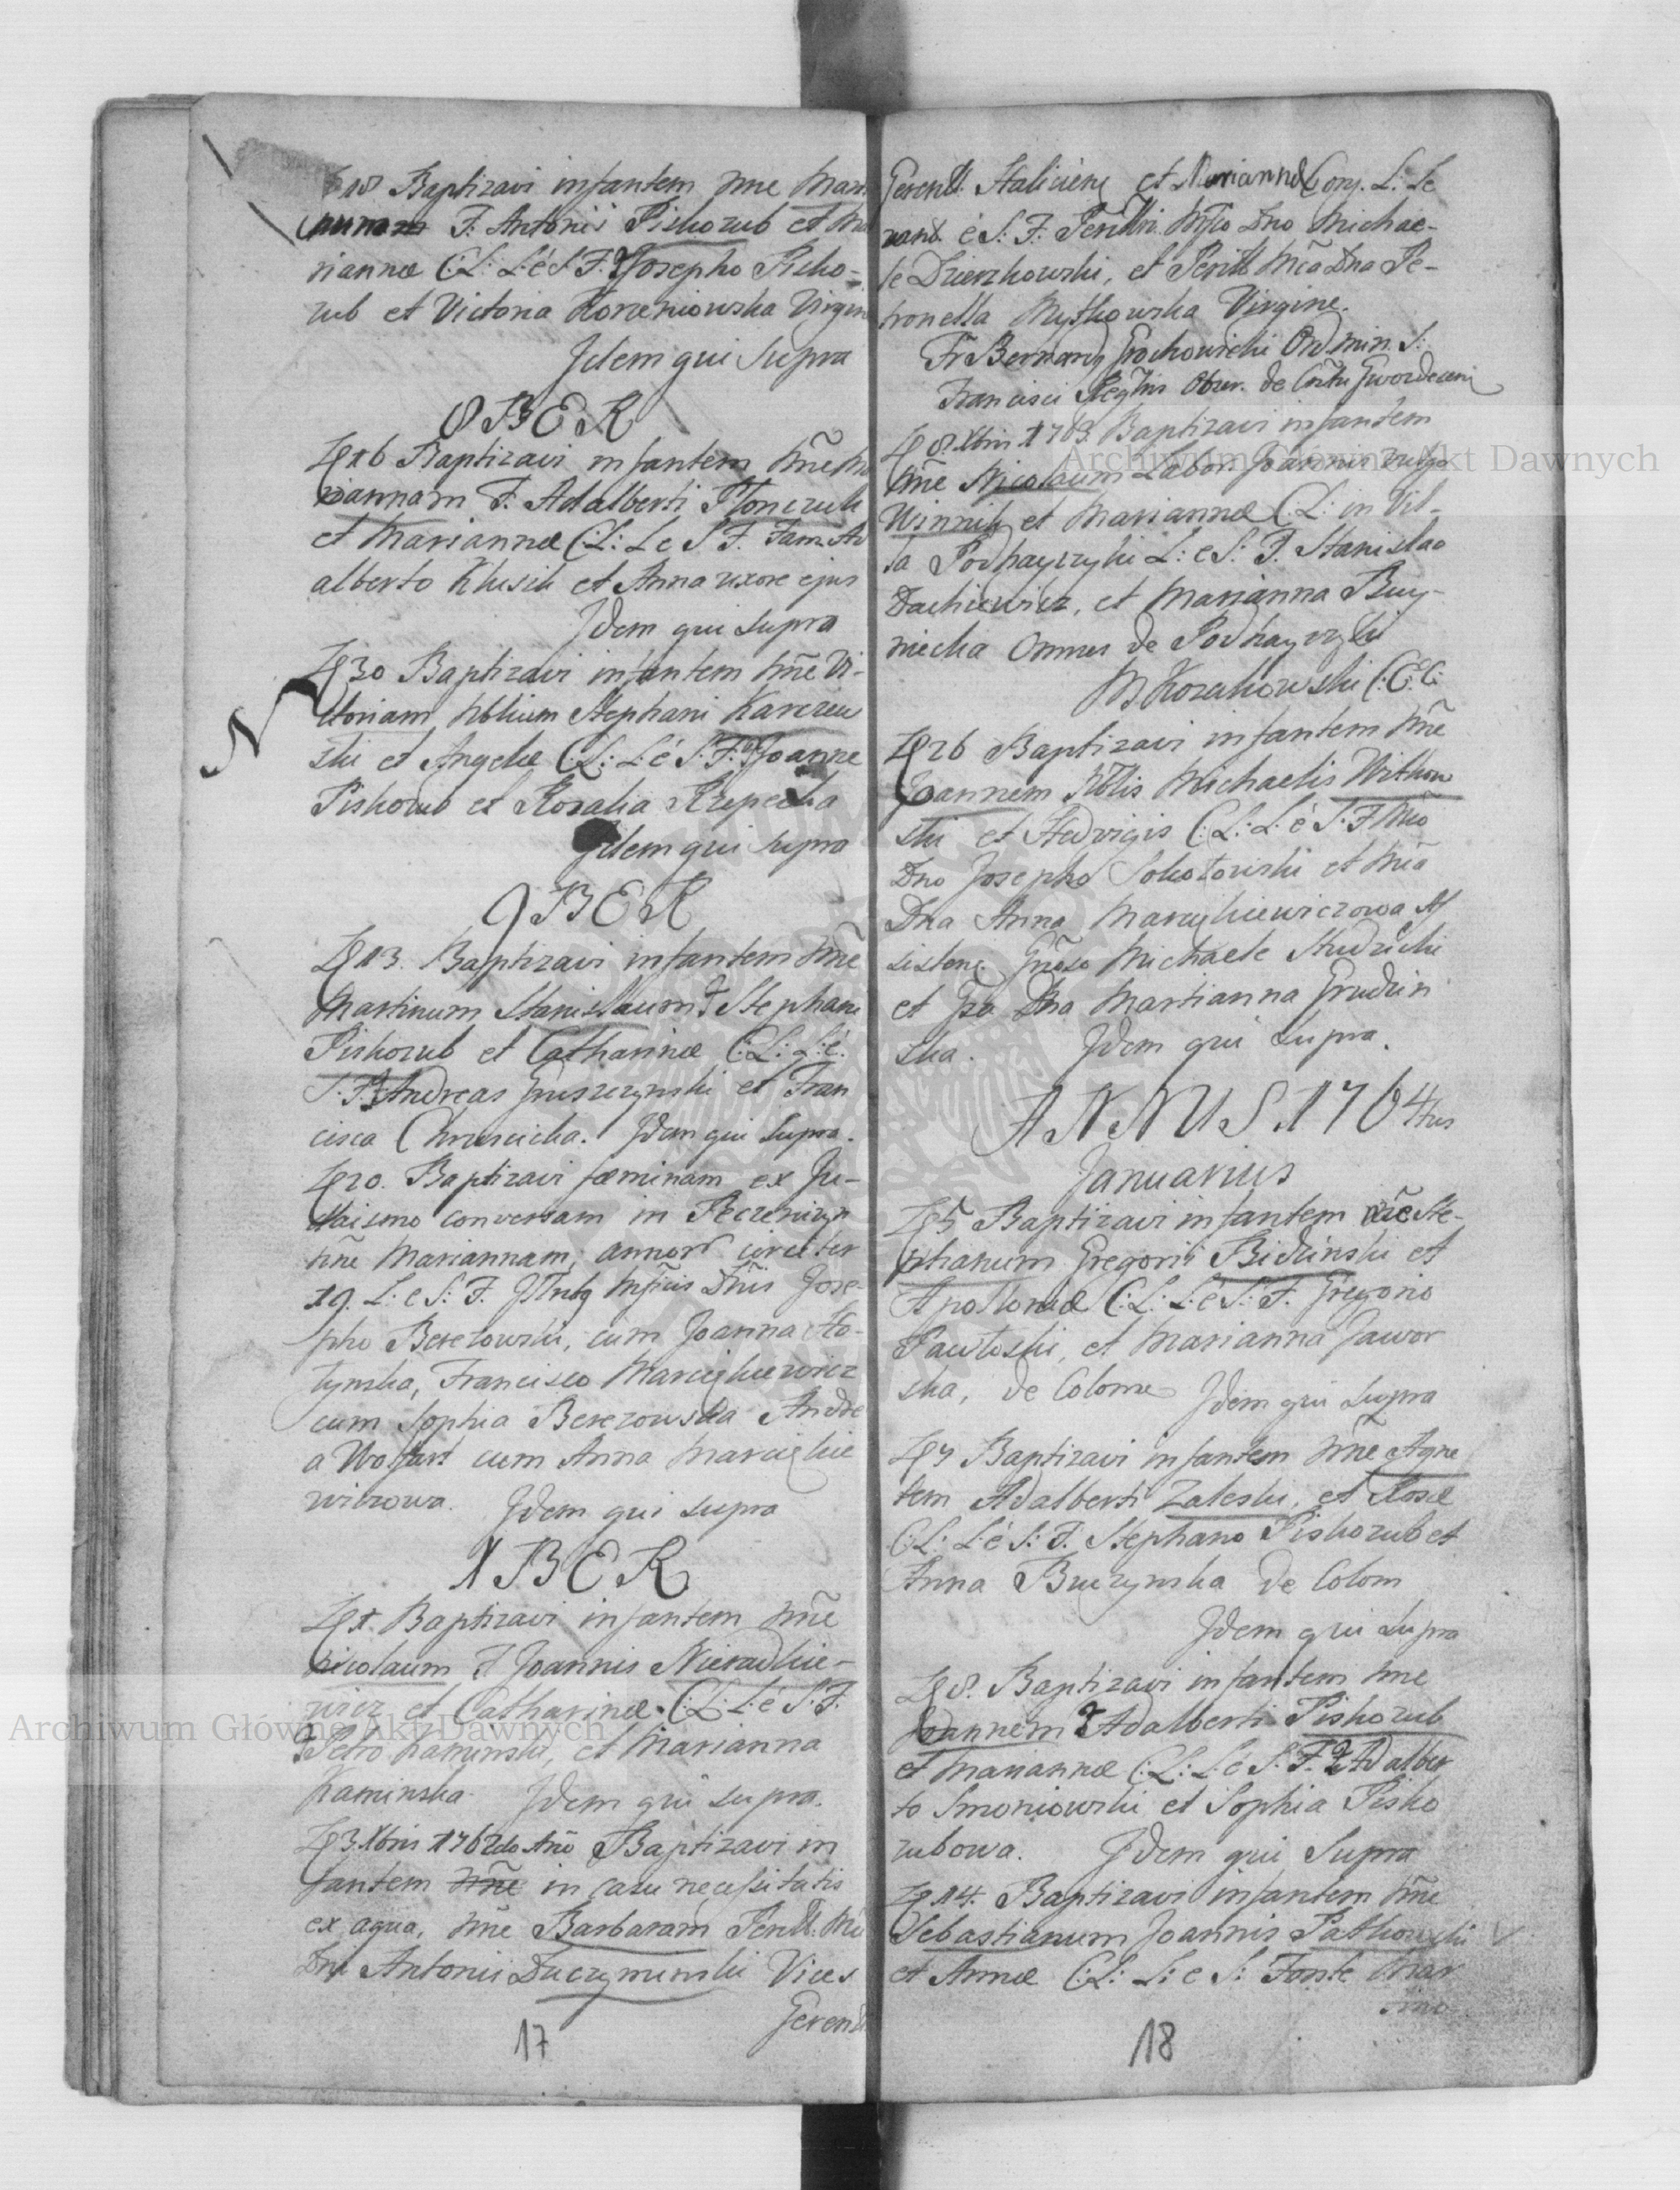 18 Baptizavi infantem nne Mari
annam F: Antonii Piskozub et Ma
riannæ C:L: L: é S: F: Josepho Pisko-
zub et Victoria Korzeniowska Virgine
Idem qui Supra
8BER
D 16 Baptizavi infantem nne Ma
riannam F: Adalberti Płonczuk
et Mariannæ C:L: L e S F. Fam. Ad
alberto Klusik et Anna uxore ejus
Idem qui supra
D 30 Baptizavi infantem nne Vi-
N
ctoriam Nobilium Stephani Karczew
ski et Angelæ C:L: L: é S: F: Joanne
Piskozub et Rosalia Rzepecka
Idem qui supra
9BER
D 13. Baptizavi infantem nne
Martinum Stanislaum F Stephani
Piskozub et Catharinæ C:L: L: é.
S: F: Andreas Gruszczynski et Fran
cisca Chruscicka. Idem qui Supra.
D 20. Baptizavi fæminam ex Ju-
daismo conversam in Peczenizyn
nne Mariannam, annor circiter
19. L: e S: F. Mficis Dnis Jose-
pho Berezowski, cum Joanna Ho-
tynska, Francisco Marcijkiewicz
cum Sophia Berezowska Andre
a Wolfart cum Anna Marcijkie
wiczowa. Idem qui supra
XBER
D 1. Baptizavi infantem nne
Nicolaum F Joannis Nieradkie-
wicz et Catharinæ C:L: L: é S: F.
F Petro Kaminski, et Marianna
Kaminska Idem qui supra.
D 3 Xbris 1762do Ano Baptizavi in
fantem nne in casu necessitatis
ex aqua, nne Barbaram Perill. M
Dni Antonii Duczyminski Vices
Gerend
17
Gerend. Staliciens et Mariannæ Conj. L: Le
vant. é S: F: Perillri. Mfco Dno Michae-
le Dzierzkowski, et Perill Mca Dna Pe-
tronella Mytkowska Virgine.
Fr Bernardg Grochowicki Ord. Min. S:
Francisci Reglris Obser. de Cntu Gwozdecens
D 8. Xbris 1763. Baptizavi infantem
nne Nicolaum Labor. Joannis vulgo
Winnik et Mariannæ C L: in Vil-
la Podhayczyki L: e S: F. Stanislao
Dackiewicz, et Marianna Buy-
nicka omnes de Podhayczyki
M Kozakowski C:E:C:
D 26 Baptizavi infantem nne
Joannem Nblis Michaelis Witkow
ski et Hedvigis C:L: L: é S: F Mco
Dno Josepho Sokołowski et Mca
Dna Anna Marcijkiewiczowa As
sistens. Gnoso Michaele Studzicki
et Gsa Dna Martianna Grudzin
ska. Idem qui supra.
ANNUS. 1764tus
Januarius
D 5 Baptizavi infantem nne Ste-
phanum Gregorii Bidzinski et
Apolloniæ C:L: L: é S: F. Gregorio
Pawłoski, et Marianna Jawor
ska, de Colome Idem qui supra
D 7 Baptizavi infantem nne Agne
tem Adalberti Zaleski, et Rosæ
C:L: L: é S: F. Stephano Piskozub et
Anna Buczynska de Colom
Idem qui supra
D 8. Baptizavi infantem nne
Joannem F Adalberti Piskozub
et Mariannæ C:L: L: é S: F. F Adalber
to Smoniowski et Sophia Pisko
zubowa. Idem qui Supra
D 14. Baptizavi infantem nne
Sebastianum Joannis Patkowski
et Annæ C:L: L: e S: Fonte Mar
tino
18
Archiwum Główne Akt Dawnych
Archiwum Główne Akt Dawnych